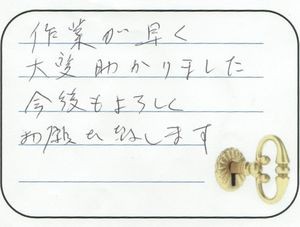 作業が早く
大変助かりました
今後もよろしく
お願い致します